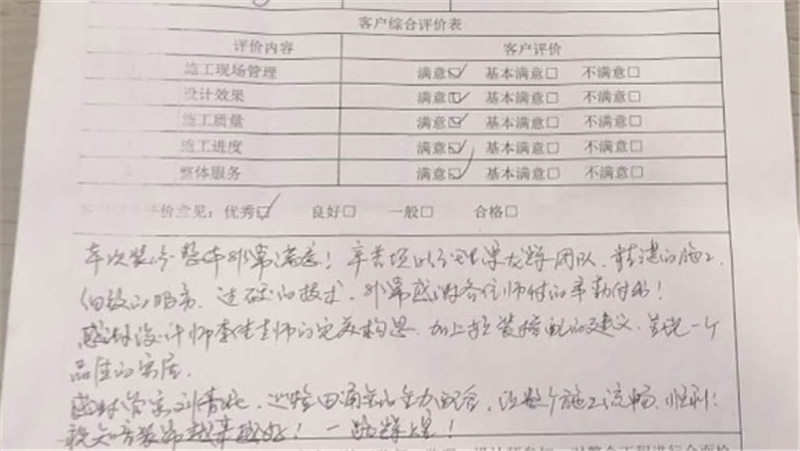 客户综合评价表
评价内容 客户评价
施工现场管理 满意☑ 基本满意□ 不满意□
设计效果 满意☑ 基本满意□ 不满意□
施工质量 满意☑ 基本满意□ 不满意□
施工进度 满意☑ 基本满意□ 不满意□
整体服务 满意☑ 基本满意□ 不满意□
评价意见：优秀☑ 良好□ 一般□ 合格□
本次装修整体非常满意！辛苦项目经理梁友辉团队，精湛的施工
细致的服务，过硬的技术，非常感谢各位师付的辛勤付出！
感谢设计师李佳老师的完美构思，加上软装搭配的建议，呈现一个
品质的家居。
感谢管家刘青，巡检田涌全的全力配合，让整个施工流畅，顺利！
祝知音装饰越来越好！一路辉煌！